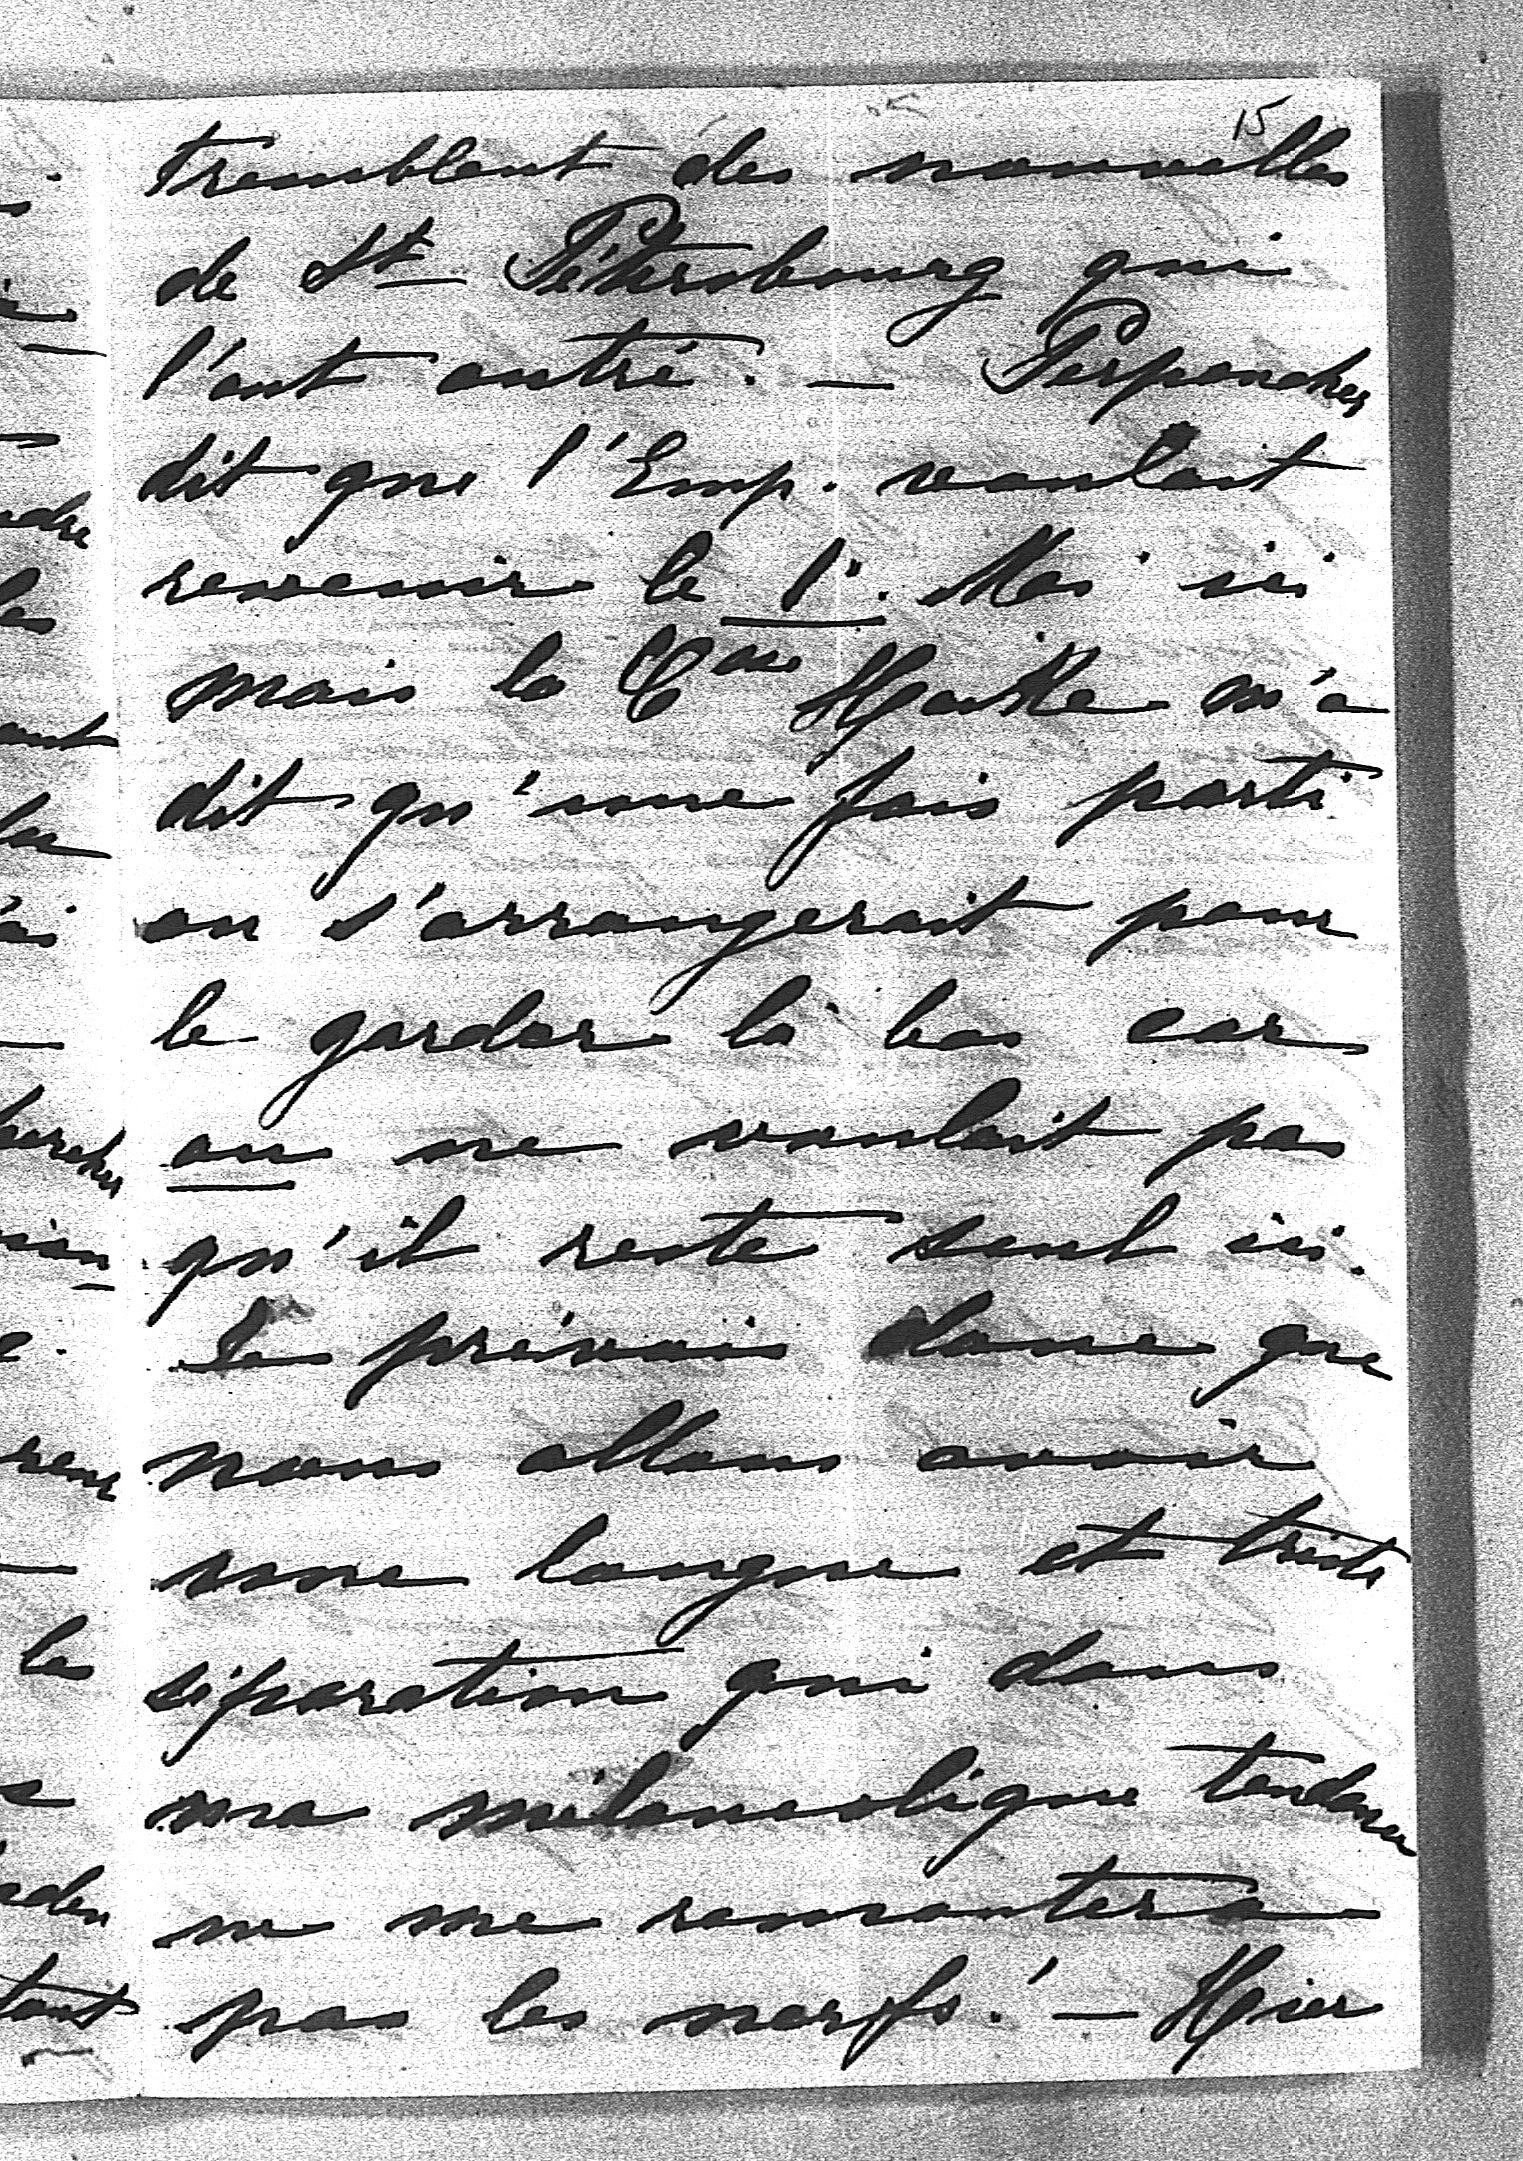 15
tremblent des nouvelles
de St Pétersbourg qui
l'ont outré. — Perponcher
dit que l'Emp. voulait
revenir le 1. Mai ici
mais la Ctesse Hacke m'a
dit qu'une fois parti
on s'arrangerait pour
le garder là bas car
on ne voulait pas
qu'il reste seul ici.
Je prévois donc que
nous allons avoir
une longue et triste
séparation qui dans
ma mélancolique tendance
ne me remontera
pas les nerfs! — Hier